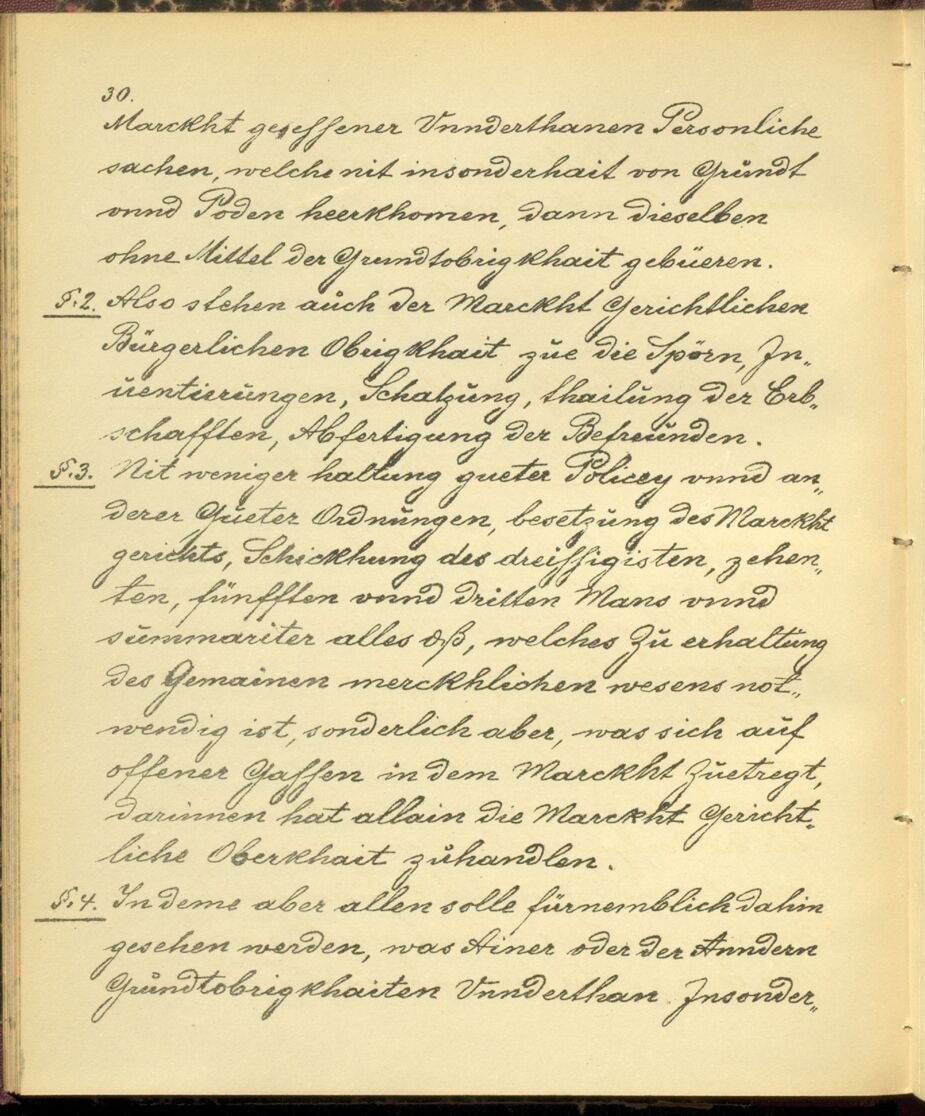 30.
Marckht gesessener Vnnderthanen Personliche
sachen, welche nit insonderhait von Gründt
vnnd Poden heerkhomen, dann dieselben
ohne Mittel der Grundtobrigkhait gebüeren.
§.2. Also stehen auch der Marckht Gerichtlichen
Bürgerlichen Obrigkhait züe die Spörn, In„
uentierüngen, Schatzüng, thailüng der Erb„
schafften, Abfertigung der Befreünden.
§.3. Nit weniger haltung gueter Policey vnnd an„
derer Güeter Ordnüngen, besetzüng des Marckht
gerichts, Schickhung des dreissigisten, zehen„
ten, fünfften vnnd dritten Mans vnnd
summariter alles dß, welches Zu erhaltüng
des Gemainen merckhlichen wesens not„
wendig ist, sonderlich aber, was sich auf
offener Gassen in dem Marckht Zuetregt,
darinnen hat allain die Marckht Gericht„
liche Oberkhait zuhandlen.
§.4. In deme aber allen solle fürnemblich dahin
gesehen werden, was Ainer oder der Anndern
Gründtobrigkhaiten Vnnderthan Insonder„